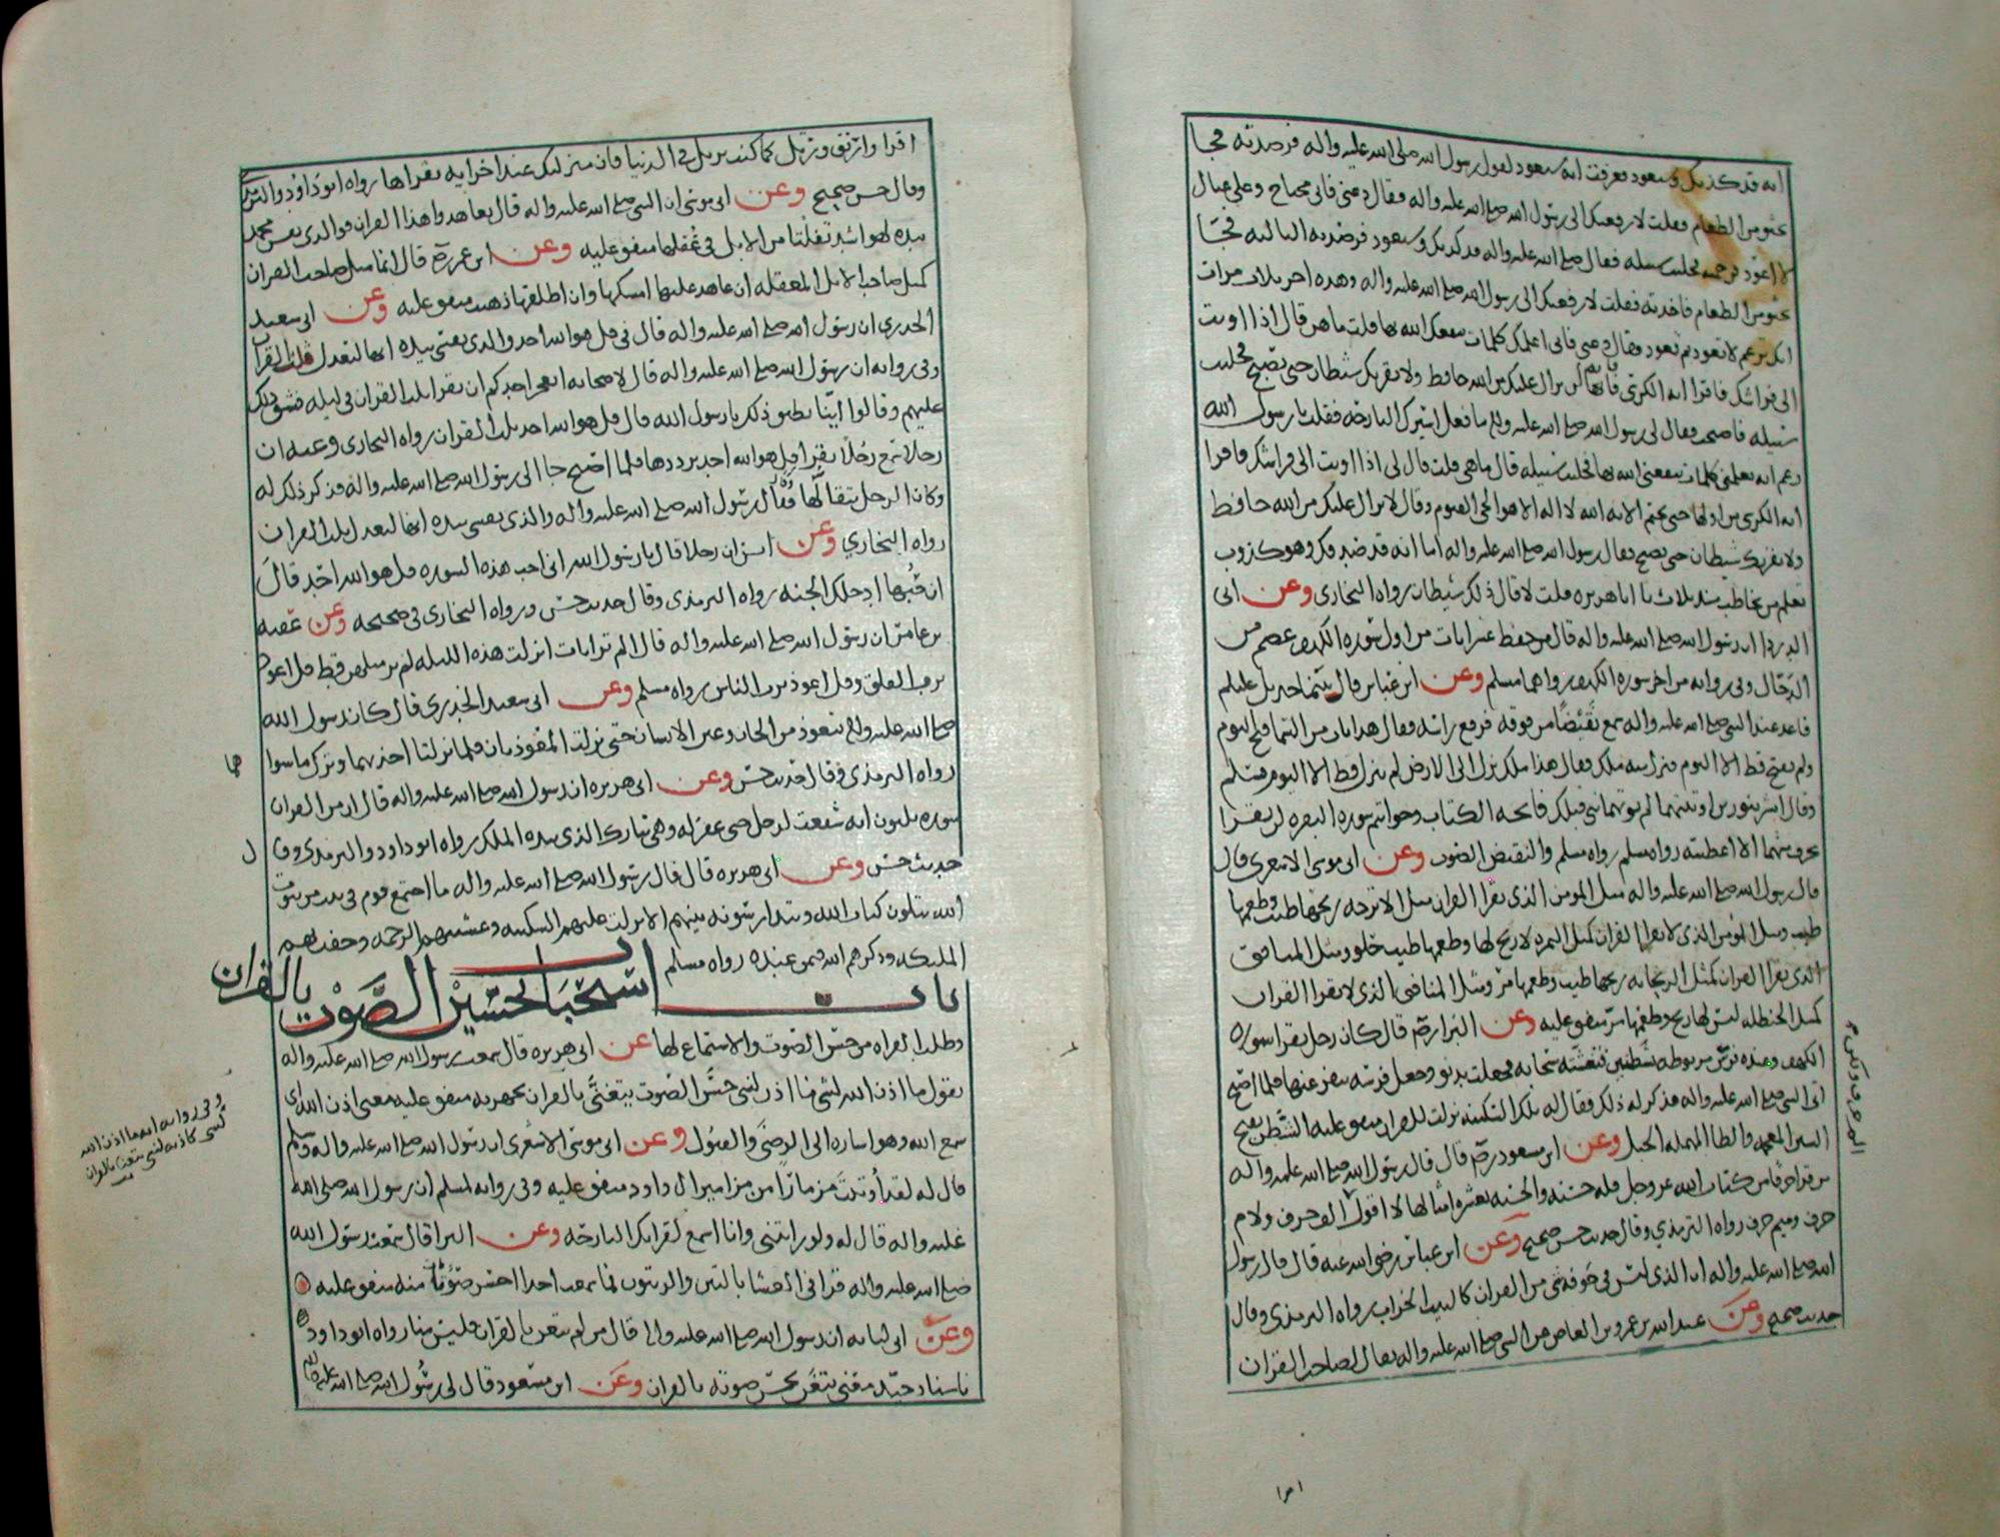 انه قد كذبك وسيعود فعرفت انه سيعود لقول رسول الله صلى الله عليه واله فرصدته فجا
يحثو من الطعام فقلت لارفعنك الى رسول الله صلى الله عليه واله فقال دعني فاني محتاج وعلي عيال
لا اعود فرحمته فخليت سبيله فقال صلى الله عليه واله قد كذبك وسيعود فرصدته الثالثه فجا
يحثو من الطعام فاخذته فقلت لارفعنك الى رسول الله صلى الله عليه واله وهذه اخر ثلاث مرات
انك تزعم لا تعود ثم تعود فقال دعني فاني اعلمك كلمات ينفعك الله بها قلت ما هن قال اذا اويت
الى فراشك فاقرا ايه الكرسي فانه لن يزال عليك من الله حافظ ولا يقربك شيطان حتى تصبح فخليت
سبيله فاصبحت فقال لي رسول الله صلى الله عليه واله ما فعل اسيرك البارحه فقلت يا رسول الله
زعم انه يعلمني كلمات ينفعني الله بها فخليت سبيله قال ما هي قلت قال لي اذا اويت الى فراشك فاقرا
ايه الكرسي من اولها حتى تختم الايه الله لا اله الا هو الحي القيوم وقال لا يزال عليك من الله حافظ
ولا يقربك شيطان حتى تصبح فقال رسول الله صلى الله عليه واله اما انه قد صدقك وهو كذوب
تعلم من تخاطب منذ ثلاث يا ابا هريره قلت لا قال ذلك شيطان رواه البخاري وعن ابي
الدردا ان رسول الله صلى الله عليه واله قال من حفظ عشر ايات من اول سوره الكهف عصم من
الدجال وفي روايه من اخر سوره الكهف رواهما مسلم وعن ابن عباس قال بينما جبريل عليلم
قاعد عند النبي صلى الله عليه واله سمع نقيضا من فوقه فرفع راسه فقال هذا باب من السما فتح اليوم
ولم يفتح قط الا اليوم فنزل منه ملك فقال هذا ملك نزل الى الارض لم ينزل قط الا اليوم فسلم
وقال ابشر بنورين اوتيتهما لم يوتهما نبي قبلك فاتحه الكتاب وخواتيم سوره البقره لن تقرا
بحرف منهما الا اعطيته رواه مسلم رواه مسلم والنقيض الصوت وعن ابي موسى الاشعري قال
قال رسول الله صلى الله عليه واله مثل المومن الذي يقرا القران مثل الاترجه ريحها طيب وطعمها
طيب ومثل المومن الذي لا يقرا القران كمثل التمره لا ريح لها وطعمها طيب حلو ومثل المنافق
الذي يقرا القران كمثل الريحانه ريحها طيب وطعمها مر ومثل المنافق الذي لا يقرا القران
كمثل الحنظله ليس لها ريح وطعمها مر متفق عليه وعن البرا رضي قال كان رجل يقرا سوره
الكهف وعنده فرس مربوطه بشطنين فتغشته سحابه فجعلت تدنو وجعل فرسه ينفر عنها فلما اصبح
اتى النبي صلى الله عليه واله فذكر له ذلك فقال له تلك السكينه نزلت للقران متفق عليه الشطن بفتح
الشين المعجمه والطا المهمله الحبل وعن ابن مسعود رضي قال قال رسول الله صلى الله عليه واله
من قرا حرفا من كتاب الله عز وجل فله حسنه والحسنه بعشر امثالها لا اقول الم حرف ولام
حرف وميم حرف رواه الترمذي وقال حديث حسن صحيح وعن ابن عباس رضي الله عنه قال قال رسول
الله صلى الله عليه واله ان الذي ليس في جوفه شي من القران كالبيت الخراب رواه الترمذي وقال
حديث صحيح وعن عبد الله بن عمرو بن العاص عن النبي صلى الله عليه واله يقال لصاحب القران
اقرا
اقرا وارتق ورتل كما كنت ترتل في الدنيا فان منزلتك عند اخر ايه تقراها رواه ابو داود والترمذي
وقال حسن صحيح وعن ابي موسى ان النبي صلى الله عليه واله قال تعاهدوا هذا القران فوالذي نفس محمد
بيده لهو اشد تفلتا من الابل في عقلها متفق عليه وعن ابن عمر رضي قال انما مثل صاحب القران
كمثل صاحب الابل المعقله ان عاهد عليها امسكها وان اطلقها ذهبت متفق عليه وعن ابي سعيد
الخدري ان رسول الله صلى الله عليه واله قال في قل هو الله احد والذي نفسي بيده انها لتعدل ثلث القران
وفي روايه ان رسول الله صلى الله عليه واله قال لاصحابه ايعجز احدكم ان يقرا ثلث القران في ليله فشق ذلك
عليهم وقالوا اينا يطيق ذلك يا رسول الله قال قل هو الله احد ثلث القران رواه البخاري وعنه ان
رجلا سمع رجلا يقرا قل هو الله احد يرددها فلما اصبح جا الى رسول الله صلى الله عليه واله فذكر ذلك له
وكان الرجل يتقالها فقال رسول الله صلى الله عليه واله والذي نفسي بيده انها لتعدل ثلث القران
رواه البخاري وعن انس ان رجلا قال يا رسول الله اني احب هذه السوره قل هو الله احد قال
ان حبها ادخلك الجنه رواه الترمذي وقال حديث حسن ورواه البخاري في صحيحه وعن عقبه
بن عامر ان رسول الله صلى الله عليه واله قال الم تر ايات انزلت هذه الليله لم ير مثلهن قط قل اعوذ
برب الفلق وقل اعوذ برب الناس رواه مسلم وعن ابي سعيد الخدري قال كان رسول الله
صلى الله عليه واله يتعوذ من الجان وعين الانسان حتى نزلت المعوذتان فلما نزلتا اخذ بهما وترك ما سوا
هما
رواه الترمذي وقال حديث حسن وعن ابي هريره ان رسول الله صلى الله عليه واله قال ان من القران
سوره ثلثون ايه شفعت لرجل حتى غفر له وهي تبارك الذي بيده الملك رواه ابو داود والترمذي وقا
ل
حديث حسن وعن ابي هريره قال قال رسول الله صلى الله عليه واله ما اجتمع قوم في بيت من بيوت
الله يتلون كتاب الله ويتدارسونه بينهم الا نزلت عليهم السكينه وغشيتهم الرحمه وحفتهم
الملئكه وذكرهم الله فيمن عنده رواه مسلم
باب استحباب تحسين الصوت بالقران
وطلب القراه من حسن الصوت والاستماع لها عن ابي هريره قال سمعت رسول الله صلى الله عليه واله
يقول ما اذن الله لشي ما اذن لنبي حسن الصوت يتغنى بالقران يجهر به متفق عليه معنى اذن الله اي
سمع الله وهو اشاره الى الرضى والقبول وعن ابي موسى الاشعري ان رسول الله صلى الله عليه واله وسلم
قال له لقد اوتيت مزمارا من مزامير ال داود متفق عليه وفي روايه لمسلم ان رسول الله صلى الله
عليه واله قال له ولو رايتني وانا اسمع لقراتك البارحه وعن البرا قال سمعت رسول الله
صلى الله عليه واله قرا في العشا بالتين والزيتون فما سمعت احدا احسن صوتا منه متفق عليه
وعن ابي لبابه ان رسول الله صلى الله عليه واله قال من لم يتغن بالقران فليس منا رواه ابو داود
باسناد جيد معنى يتغن يحسن صوته بالقران وعن ابن مسعود قال لي رسول الله صلى الله عليه واله
وفي روايه له ما اذن الله
لشي كاذنه لنبي يتغن بالقران